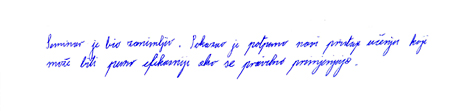 Seminar je bio zanimljiv. Pokazao je potpuno novi pristup učenju koji
može biti puno efikasnije ako se pravilno primjenjuje.